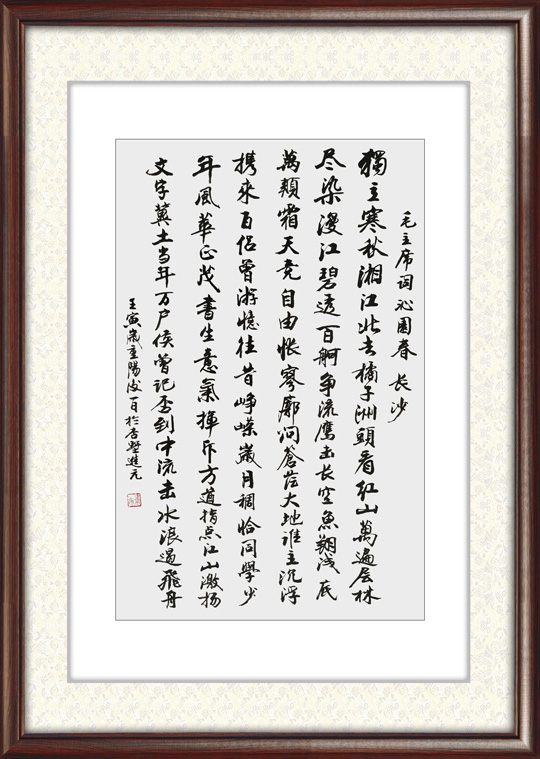 毛主席词沁園春 长沙
獨立寒秋湘江北去橘子洲頭看红山萬遍层林
尽染漫江碧透百舸争流鹰击长空魚翔浅底
萬類霜天竞自由怅寥廓问蒼茫大地谁主沉浮
携來百侣曾游憶往昔峥嵘歲月稠恰同學少
年風華正茂書生意氣揮斥方遒指点江山激扬
文字糞土当年万户侯曾记否到中流击水浪遏飛舟
壬寅歲重陽后一日於杏墅進元